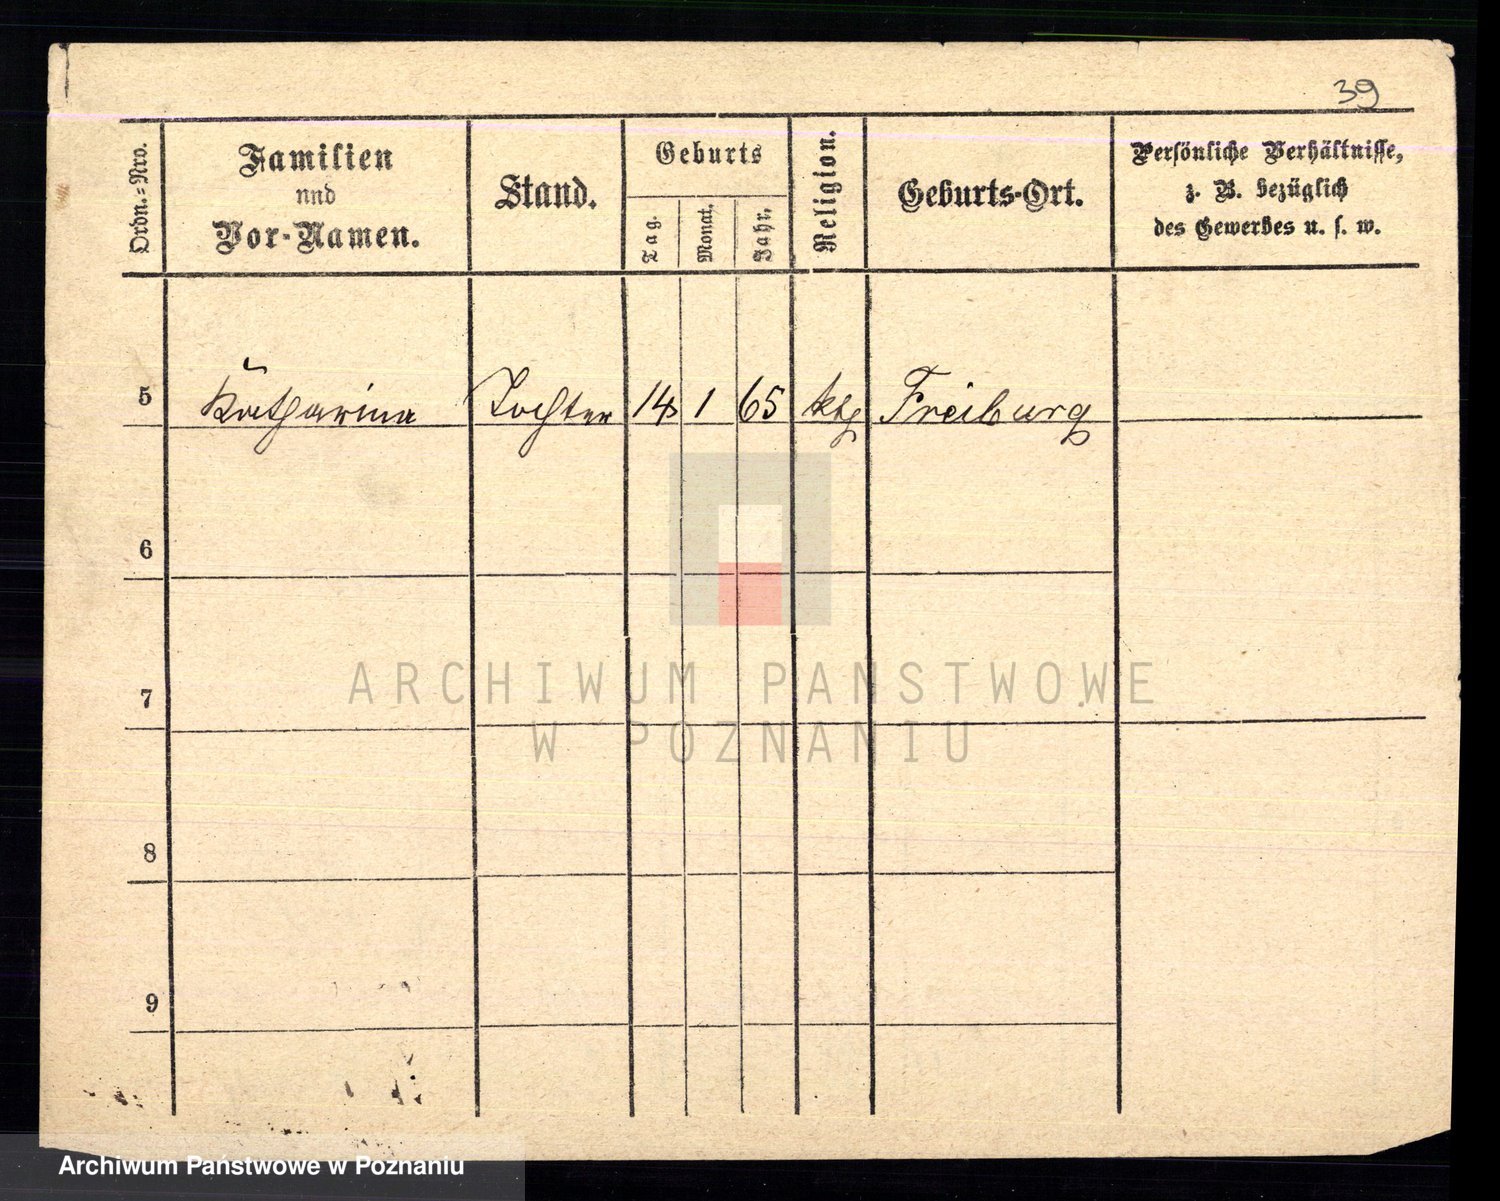 39
Ordn.=Nro.
Familien
nnd
Vor-Namen.
Stand.
Geburts
Tag.
Monat.
Jahr.
Religion.
Geburts-Ort.
Persönliche Verhältnisse,
z. B. bezüglich
des Gewerbes u. s. w.
5 Katharina Tochter 14 1 65 kth Freiburg
6
7
8
9
ARCHIWUM PAŃSTWOWE
W POZNANIU
Archiwum Państwowe w Poznaniu